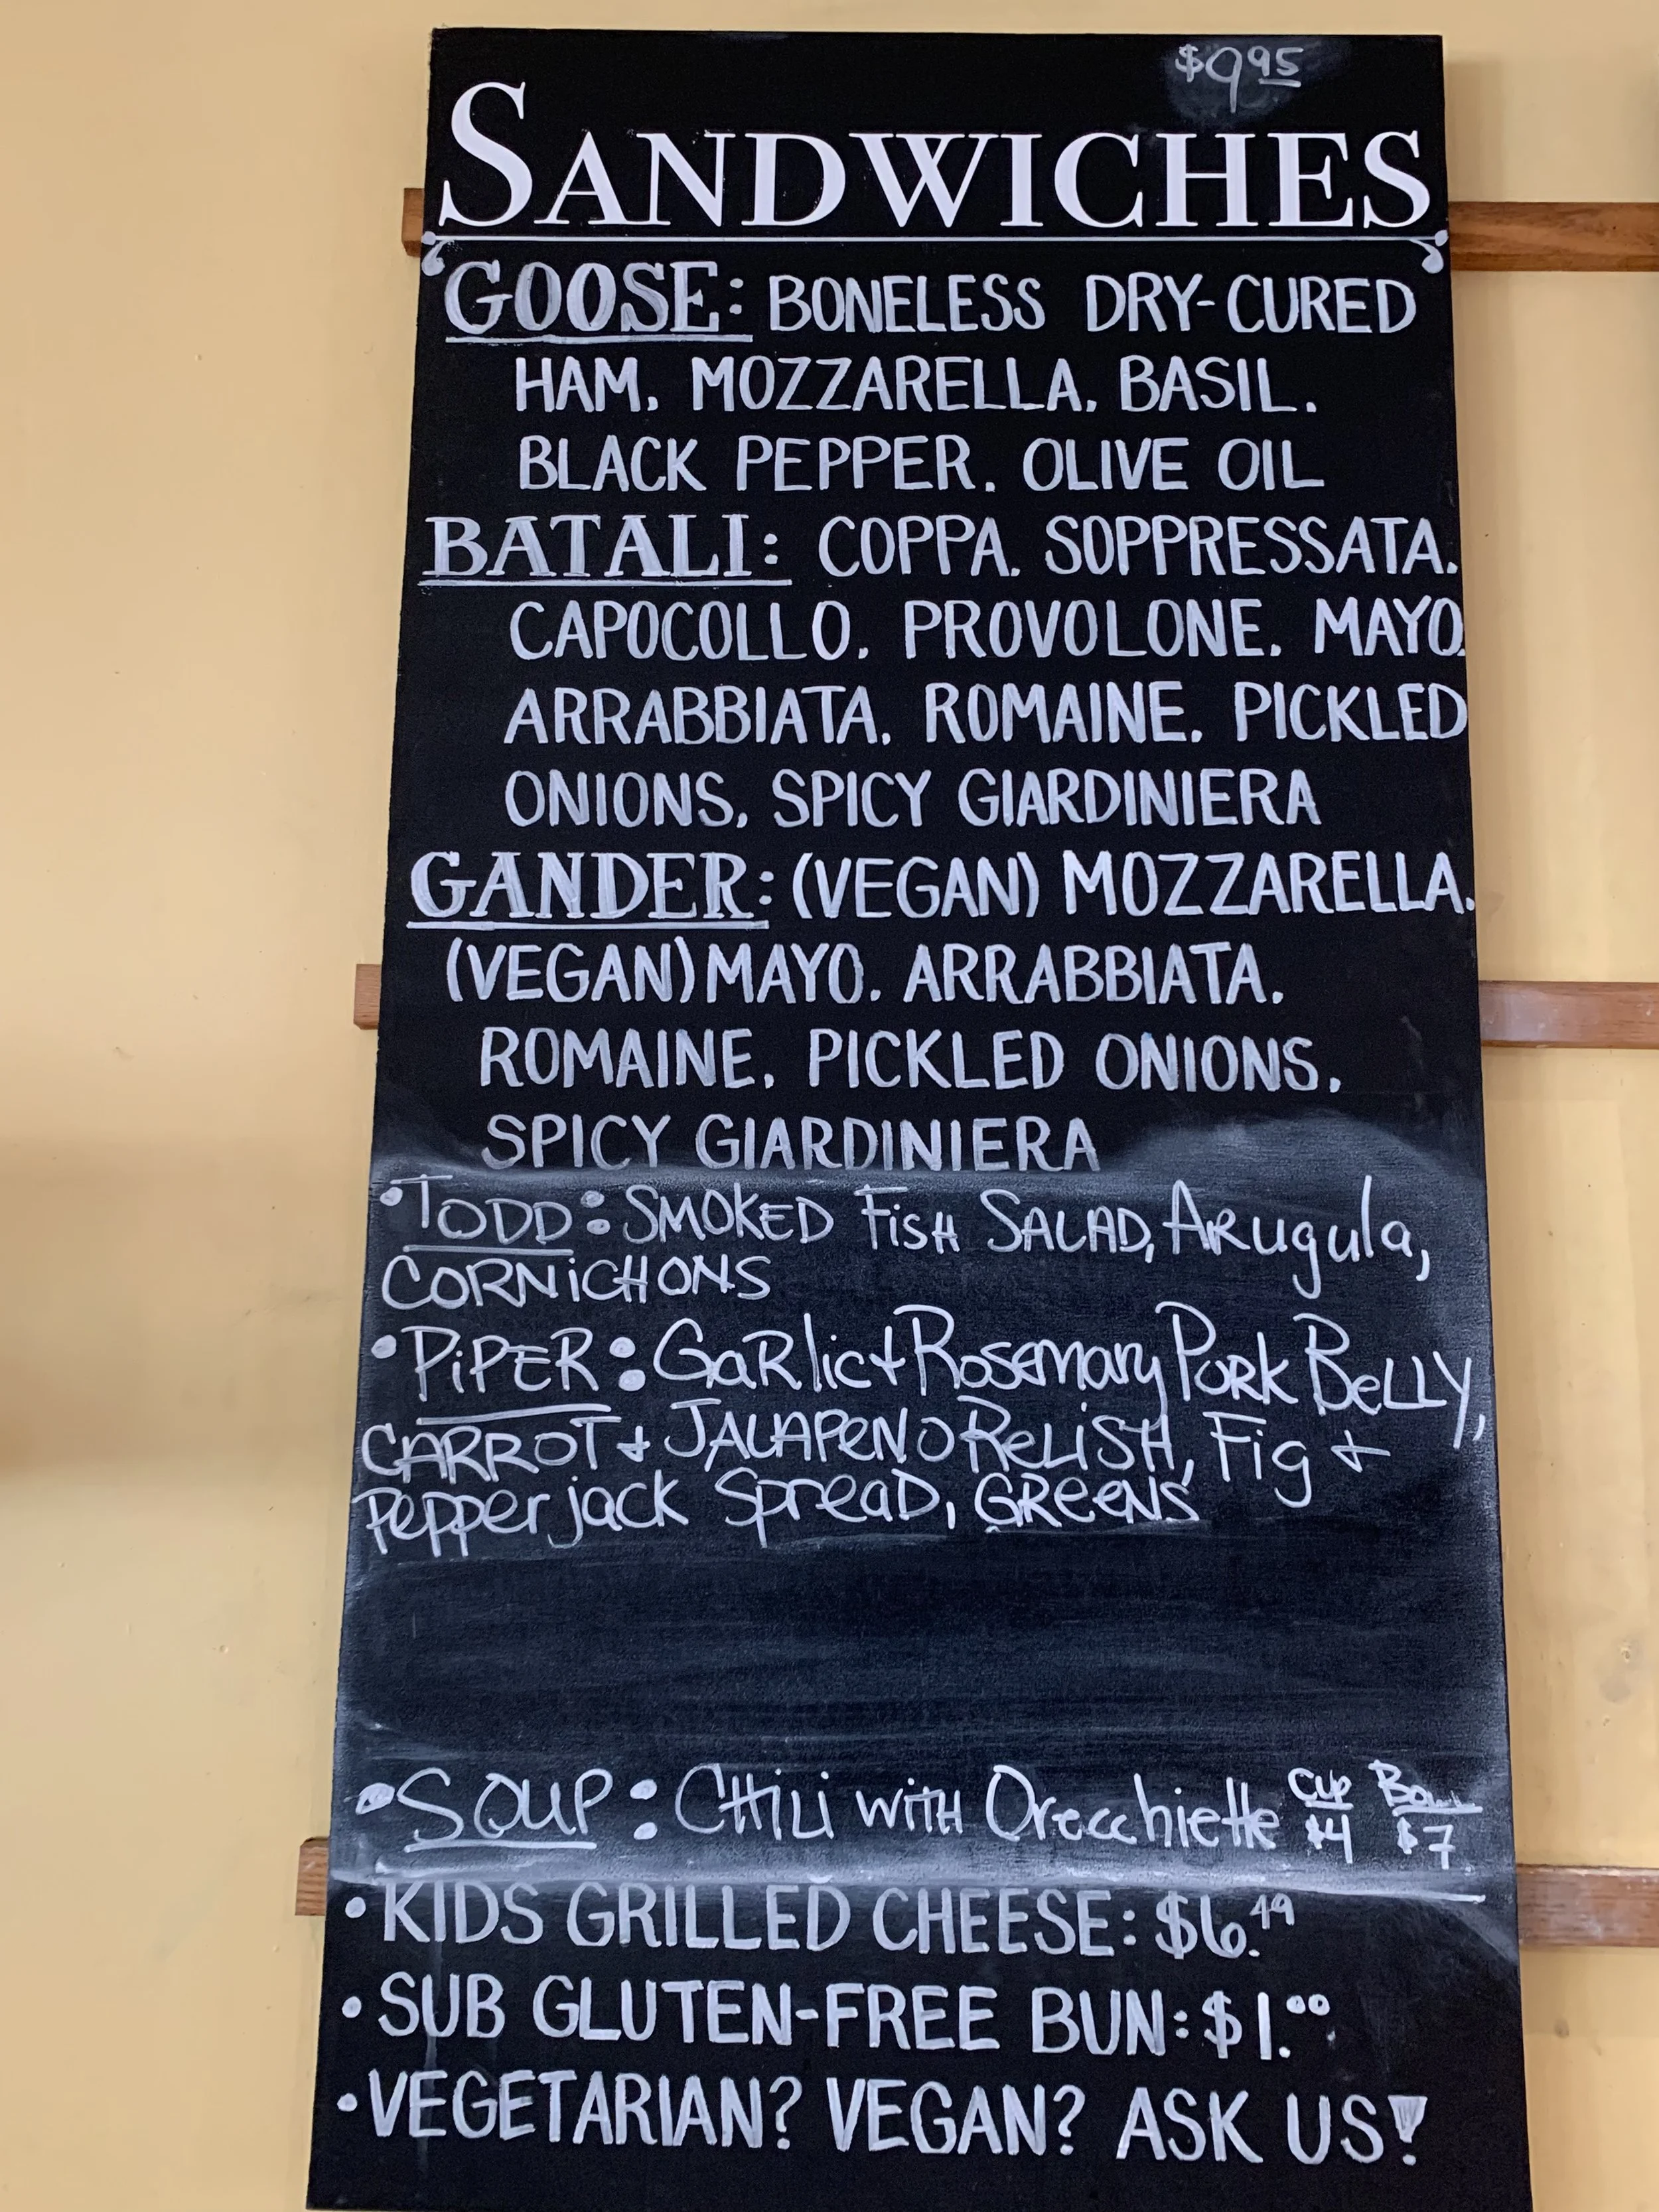 $9.95
SANDWICHES
GOOSE: BONELESS DRY-CURED
HAM. MOZZARELLA. BASIL.
BLACK PEPPER. OLIVE OIL
BATALI: COPPA. SOPPRESSATA.
CAPOCOLLO. PROVOLONE. MAYO.
ARRABBIATA. ROMAINE. PICKLED
ONIONS. SPICY GIARDINIERA
GANDER: (VEGAN) MOZZARELLA.
(VEGAN) MAYO. ARRABBIATA.
ROMAINE. PICKLED ONIONS.
SPICY GIARDINIERA
•TODD: SMOKED FisH SALAD, ARugula,
CORNiCHONS
•PiPER: GaRlic + Rosemary PORK BeLLY,
CARROT + JALAPeNO ReLiSH, Fig +
Pepperjack SpreaD, GReeNS
•SOUP: CHiLi wiTH Orecchiette Cup $4 Bowl $7
•KIDS GRILLED CHEESE: $6.49
•SUB GLUTEN-FREE BUN: $1.00
•VEGETARIAN? VEGAN? ASK US!